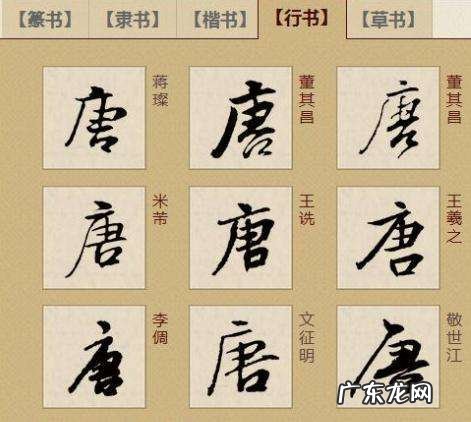 【篆书】 【隶书】 【楷书】 【行书】 【草书】
唐 蒋璨 唐 董其昌 唐 董其昌
唐 米芾 唐 王诜 唐 王羲之
唐 李倜 唐 文征明 唐 敬世江
广东龙网